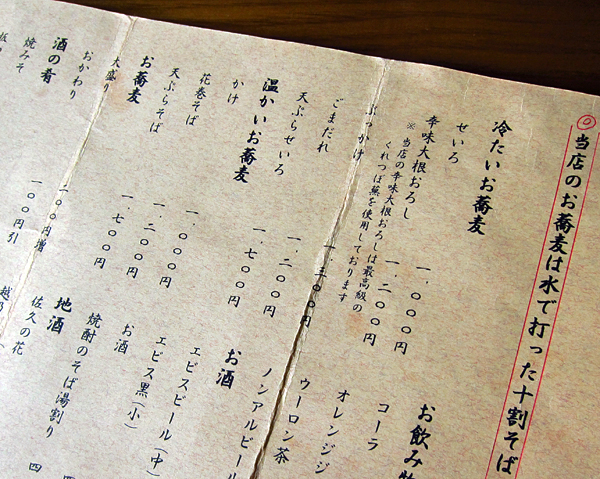 当店のお蕎麦は水で打った十割そば
冷たいお蕎麦
せいろ 一.〇〇〇円
辛味大根おろし 一.二〇〇円
※当店の辛味大根おろしは最高級の
くれつぼ蕪を使用しております
ぶっかけ 一.三〇〇円
ごまだれ 一.二〇〇円
天ぷらせいろ 一.七〇〇円
温かいお蕎麦
かけ 一.〇〇〇円
花巻そば 一.二〇〇円
天ぷらそば 一.七〇〇円
お蕎麦
大盛り 二〇〇円増
おかわり 一〇〇円引
酒の肴
焼みそ
お飲み物
コーラ
オレンジジ
ウーロン茶
ノンアルビール
お酒
エビスビール(中)
エビス黒(小)
お酒
焼酎のそば湯割り
地酒
佐久の花 四
越乃